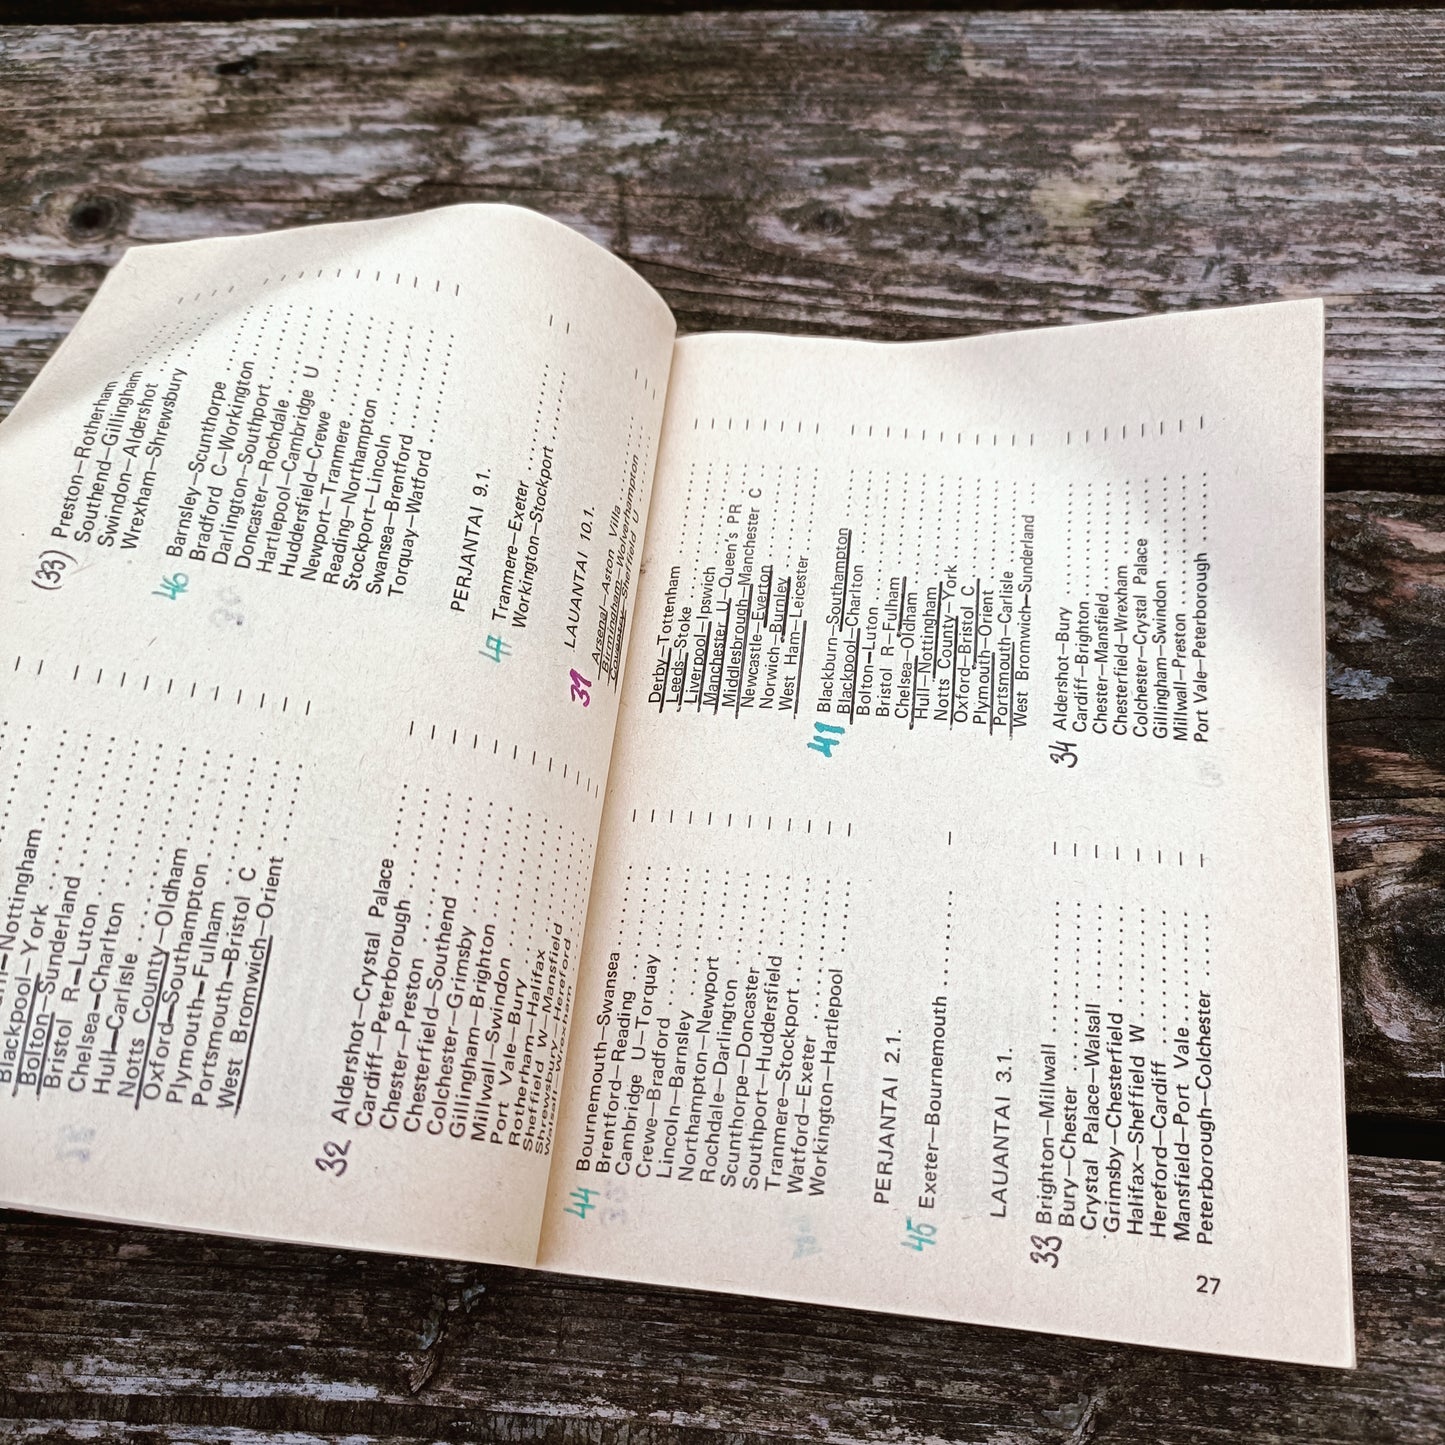 –Nottingham
Blackpool–York
Bolton–Sunderland
Bristol R–Luton
Chelsea–Charlton
Hull–Carlisle
Notts County–Oldham
Oxford–Southampton
Plymouth–Fulham
Portsmouth–Bristol C
West Bromwich–Orient
32 Aldershot–Crystal Palace
Cardiff–Peterborough
Chester–Preston
Chesterfield–Southend
Colchester–Grimsby
Gillingham–Brighton
Millwall–Swindon
Port Vale–Bury
Rotherham–Halifax
Sheffield W–Mansfield
Shrewsbury–Hereford
Walsall–Wrexham
44 Bournemouth–Swansea
Brentford–Reading
Cambridge U–Torquay
Crewe–Bradford
Lincoln–Barnsley
Northampton–Newport
Rochdale–Darlington
Scunthorpe–Doncaster
Southport–Huddersfield
Tranmere–Stockport
Watford–Exeter
Workington–Hartlepool
PERJANTAI 2.1.
45 Exeter–Bournemouth
LAUANTAI 3.1.
33 Brighton–Millwall
Bury–Chester
Crystal Palace–Walsall
Grimsby–Chesterfield
Halifax–Sheffield W
Hereford–Cardiff
Mansfield–Port Vale
Peterborough–Colchester
(33) Preston–Rotherham
Southend–Gillingham
Swindon–Aldershot
Wrexham–Shrewsbury
46 Barnsley–Scunthorpe
Bradford C–Workington
Darlington–Southport
Doncaster–Rochdale
Hartlepool–Cambridge U
Huddersfield–Crewe
Newport–Tranmere
Reading–Northampton
Stockport–Lincoln
Swansea–Brentford
Torquay–Watford
PERJANTAI 9.1.
47 Tranmere–Exeter
Workington–Stockport
LAUANTAI 10.1.
31 Arsenal–Aston Villa
Birmingham–Wolverhampton
Coventry–Sheffield U
Derby–Tottenham
Leeds–Stoke
Liverpool–Ipswich
Manchester U–Queen's PR
Middlesbrough–Manchester C
Newcastle–Everton
Norwich–Burnley
West Ham–Leicester
41 Blackburn–Southampton
Blackpool–Charlton
Bolton–Luton
Bristol R–Fulham
Chelsea–Oldham
Hull–Nottingham
Notts County–York
Oxford–Bristol C
Plymouth–Orient
Portsmouth–Carlisle
West Bromwich–Sunderland
34 Aldershot–Bury
Cardiff–Brighton
Chester–Mansfield
Chesterfield–Wrexham
Colchester–Crystal Palace
Gillingham–Swindon
Millwall–Preston
Port Vale–Peterborough
27